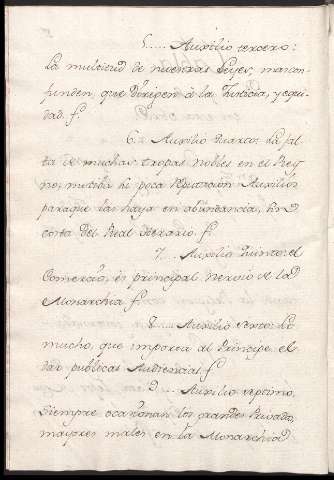 5..... Auxilio tercero:
La multitud de nuestras Leyes, mas con-
funden, que dirigen à la Justicia, y equi-
dad. f.
6. Auxilio Quarto: La fal-
ta de muchas tropas Nobles en el Rey-
no, motiba la poca Reputacion Auxilios
paraque las haya en abundancia, sin
costa del Real Herario. f.
7... Auxilio Quinto: el
Comercio, és principal nervio de la
Monarchia f.
8..... Auxilio sexto: Lo
mucho, que importa al Principe el
dar publicas Audiencias. f.
9..... Auxilio septimo,
Siempre ocasionan los grandes Privados
mayores males en la Monarchia